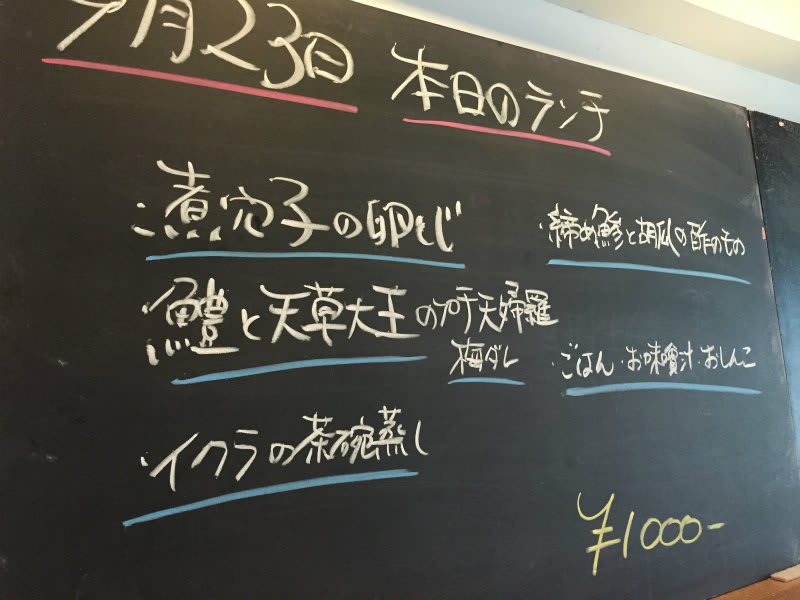 9月23日 本日のランチ
・煮穴子の卵とじ
・鱧と天草大王のプチ天婦羅
梅ダレ
・イクラの茶碗蒸し
・締め鯵と胡瓜の酢のもの
・ごはん・お味噌汁・おしんこ
¥1000-